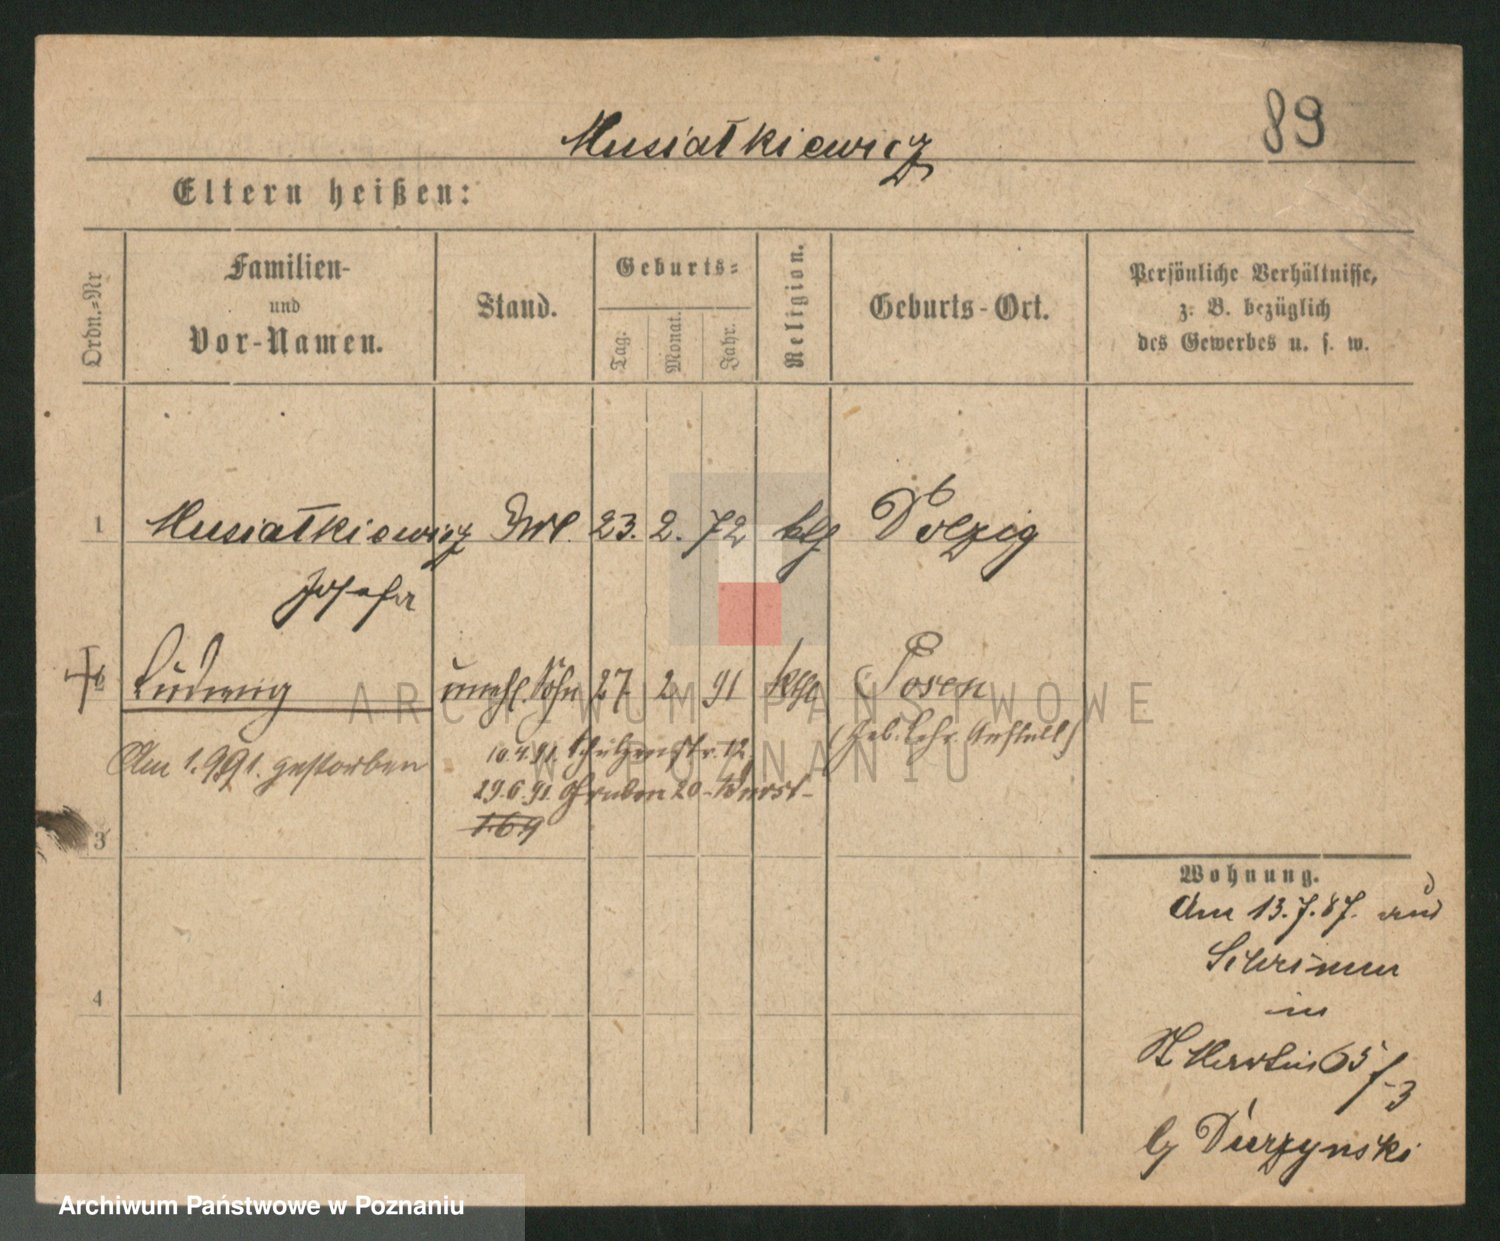 Musiatkiewicz
89
Eltern heißen:
Ordn.=Nr
Familien-
und
Vor-Namen.
Stand.
Geburts=
Tag.
Monat.
Jahr.
Religion.
Geburts-Ort.
Persönliche Verhältnisse,
z. B. bezüglich
des Gewerbes u. s. w.
1 Musiatkiewicz 23. 2. 72 Dolzig
Josefa
Ludwig unehl. Sohn 27 2 91 kth Posen
(Geb. Lehr Anstalt)
Am 1.991. gestorben
10.4.91. Schützenstr. 12
29.6.91. Graben 20
3
4
Wohnung.
Am 13.7.87. aus
Schrimm
in
St Martin 65
ARCHIWUM PAŃSTWOWE
W POZNANIU
Archiwum Państwowe w Poznaniu